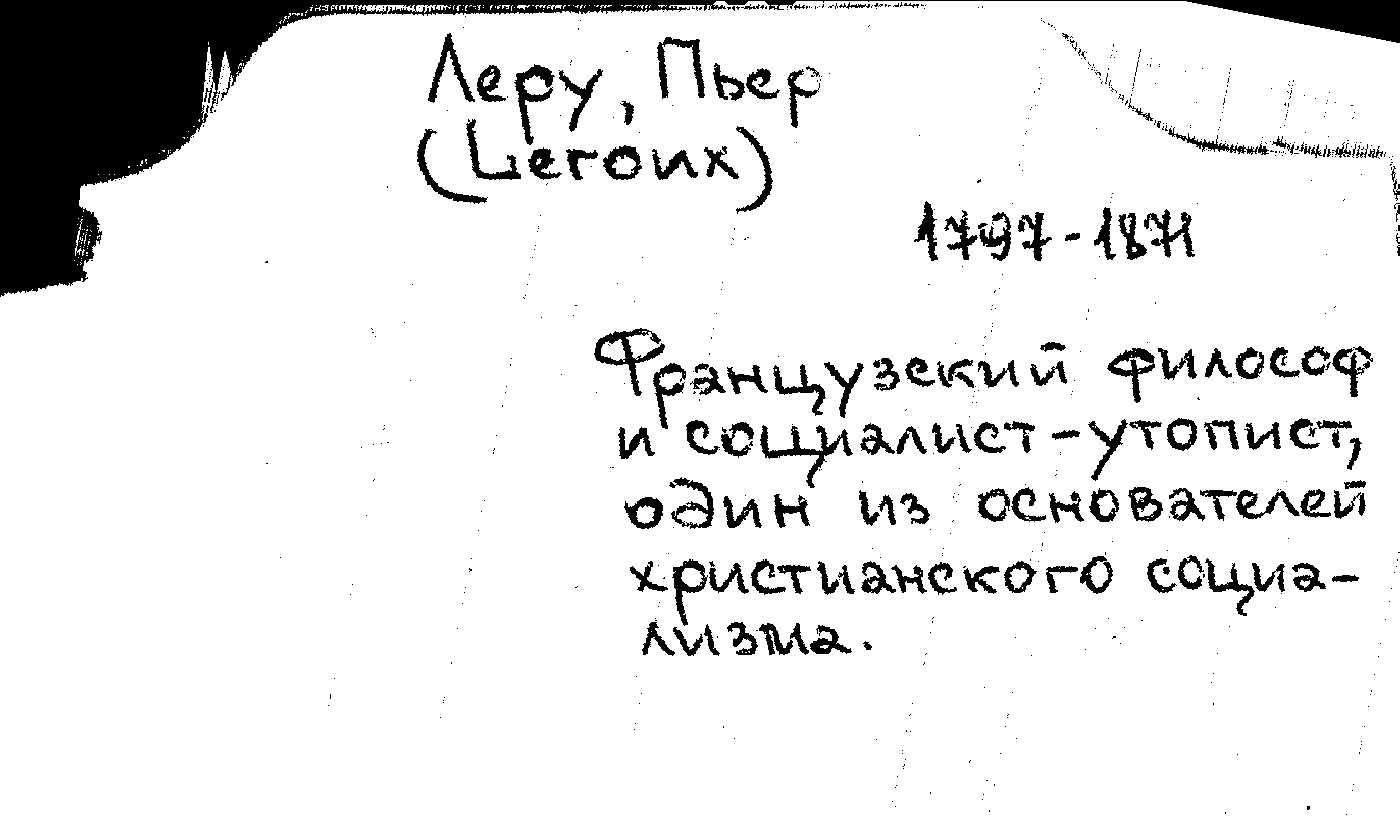 Леру, Пьер
(Leroux)
1797-1871
Французский философ
и социалист-утопист,
один из основателей
христианского социа-
лизма.